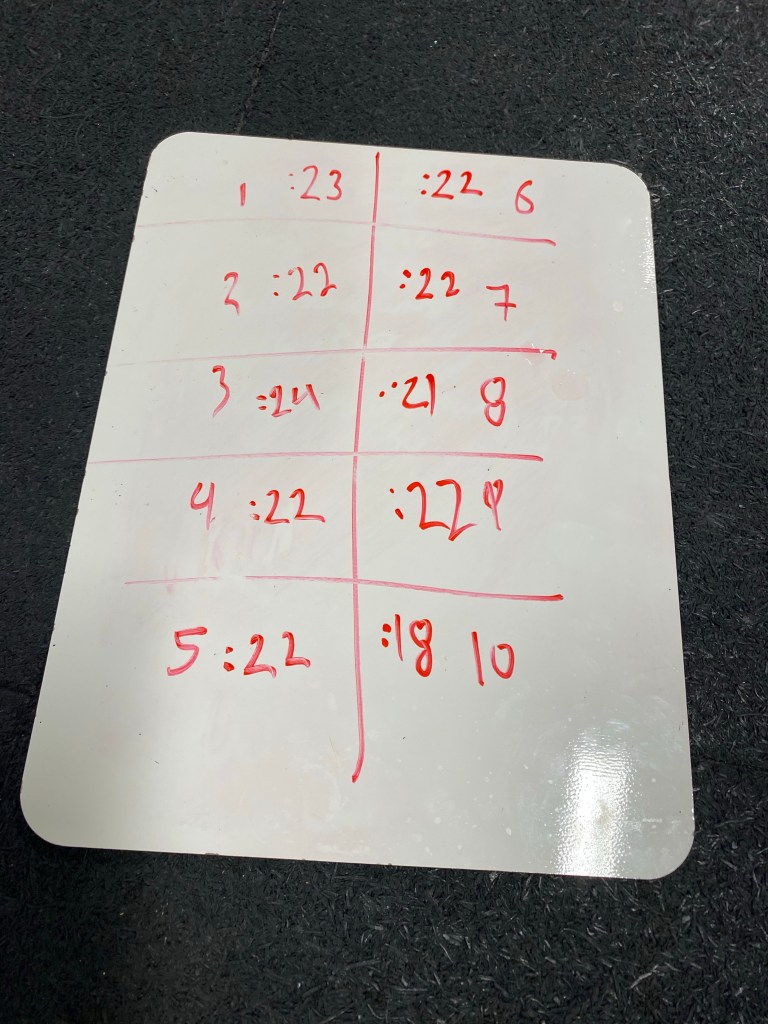 1 :23 :22 6
2 :22 :22 7
3 :24 :21 8
4 :22 :22 9
5 :22 :18 10